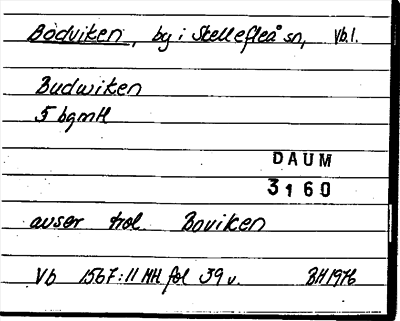 Bodviken, by i Skellefteå sn, Vb.l.
Budwiken
5 bgmH
DAUM
3160
avser trol Boviken
Vb 1567:11 MH fol 39 v. BH 1976